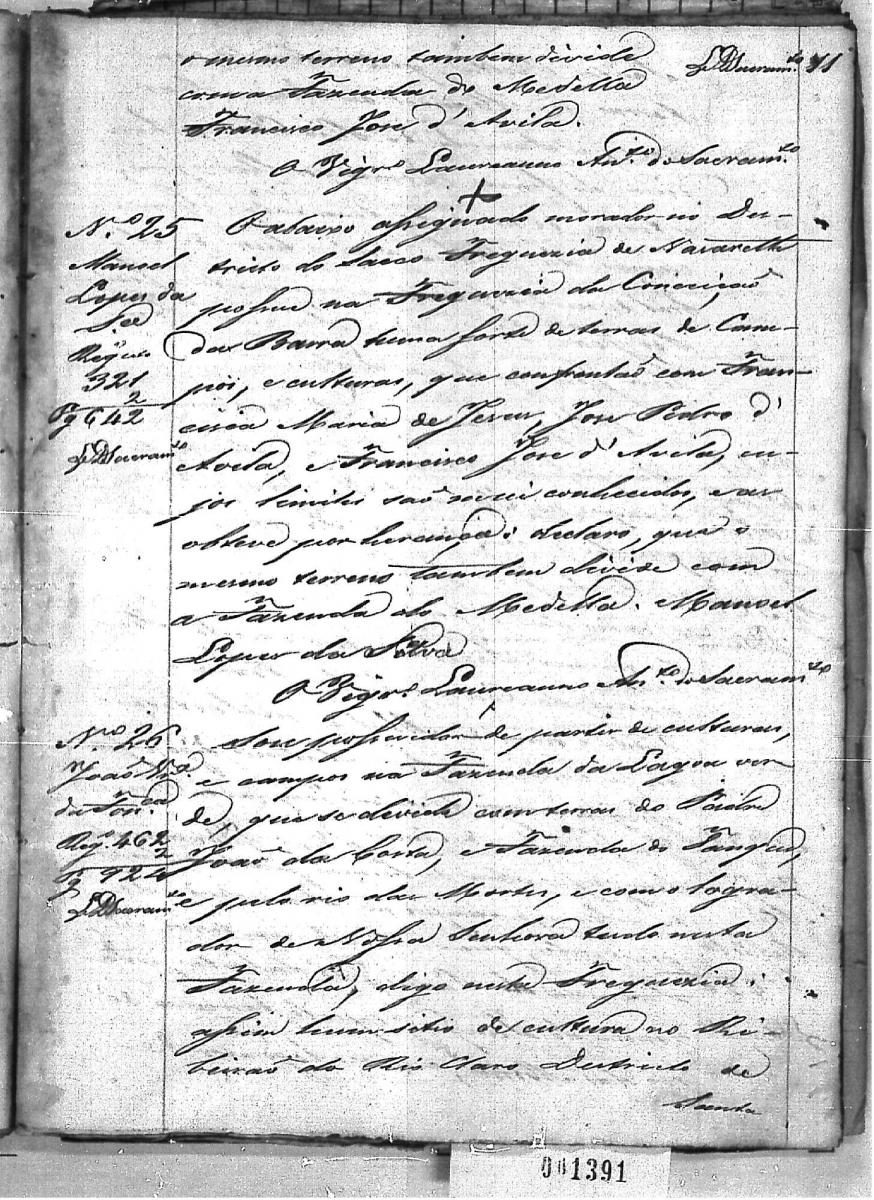 o mesmo terreno tambem divide
com a Fazenda do Medella
Francisco Jose d'Avila.
O Vigrº Laureanno Antº do Sacramto
Nº 25
Manoel
Lopes da
Sª
321
2
642
O abaixo assignado morador no Des-
tricto do Sacco Freguezia de Nasareth
possue na Freguezia da Conceição
da Barra huma sorte de terras de Cam-
pos, e culturas, que confrontaõ com Fran-
cisca Maria de Jesus, Jose Pedro d'
Avila, e Francisco Jose d'Avila, cu-
jos limites saõ conhecidos, e as
obteve por herança: declaro, que o
mesmo terreno tambem divide com
a Fazenda do Medella. Manoel
Lopes da Silva
O Vigrº Laureanno Antº do Sacramto
Nº 26
João
da Fonca
Regº 462
2
924
Sou possuidor de partes de culturas,
e campos na Fazenda da Lagoa ver
de, que se divide com terras do Padre
Joaõ da Costa, e Fazenda do Tanque,
e pelo rio das Mortes, e com o logra-
dor de Nossa Senhora tudo nesta
Fazenda, digo nesta Freguezia:
assim hum sitio de cultura no Ri-
beiraõ do Rio Claro Destricto de
Santa
001391